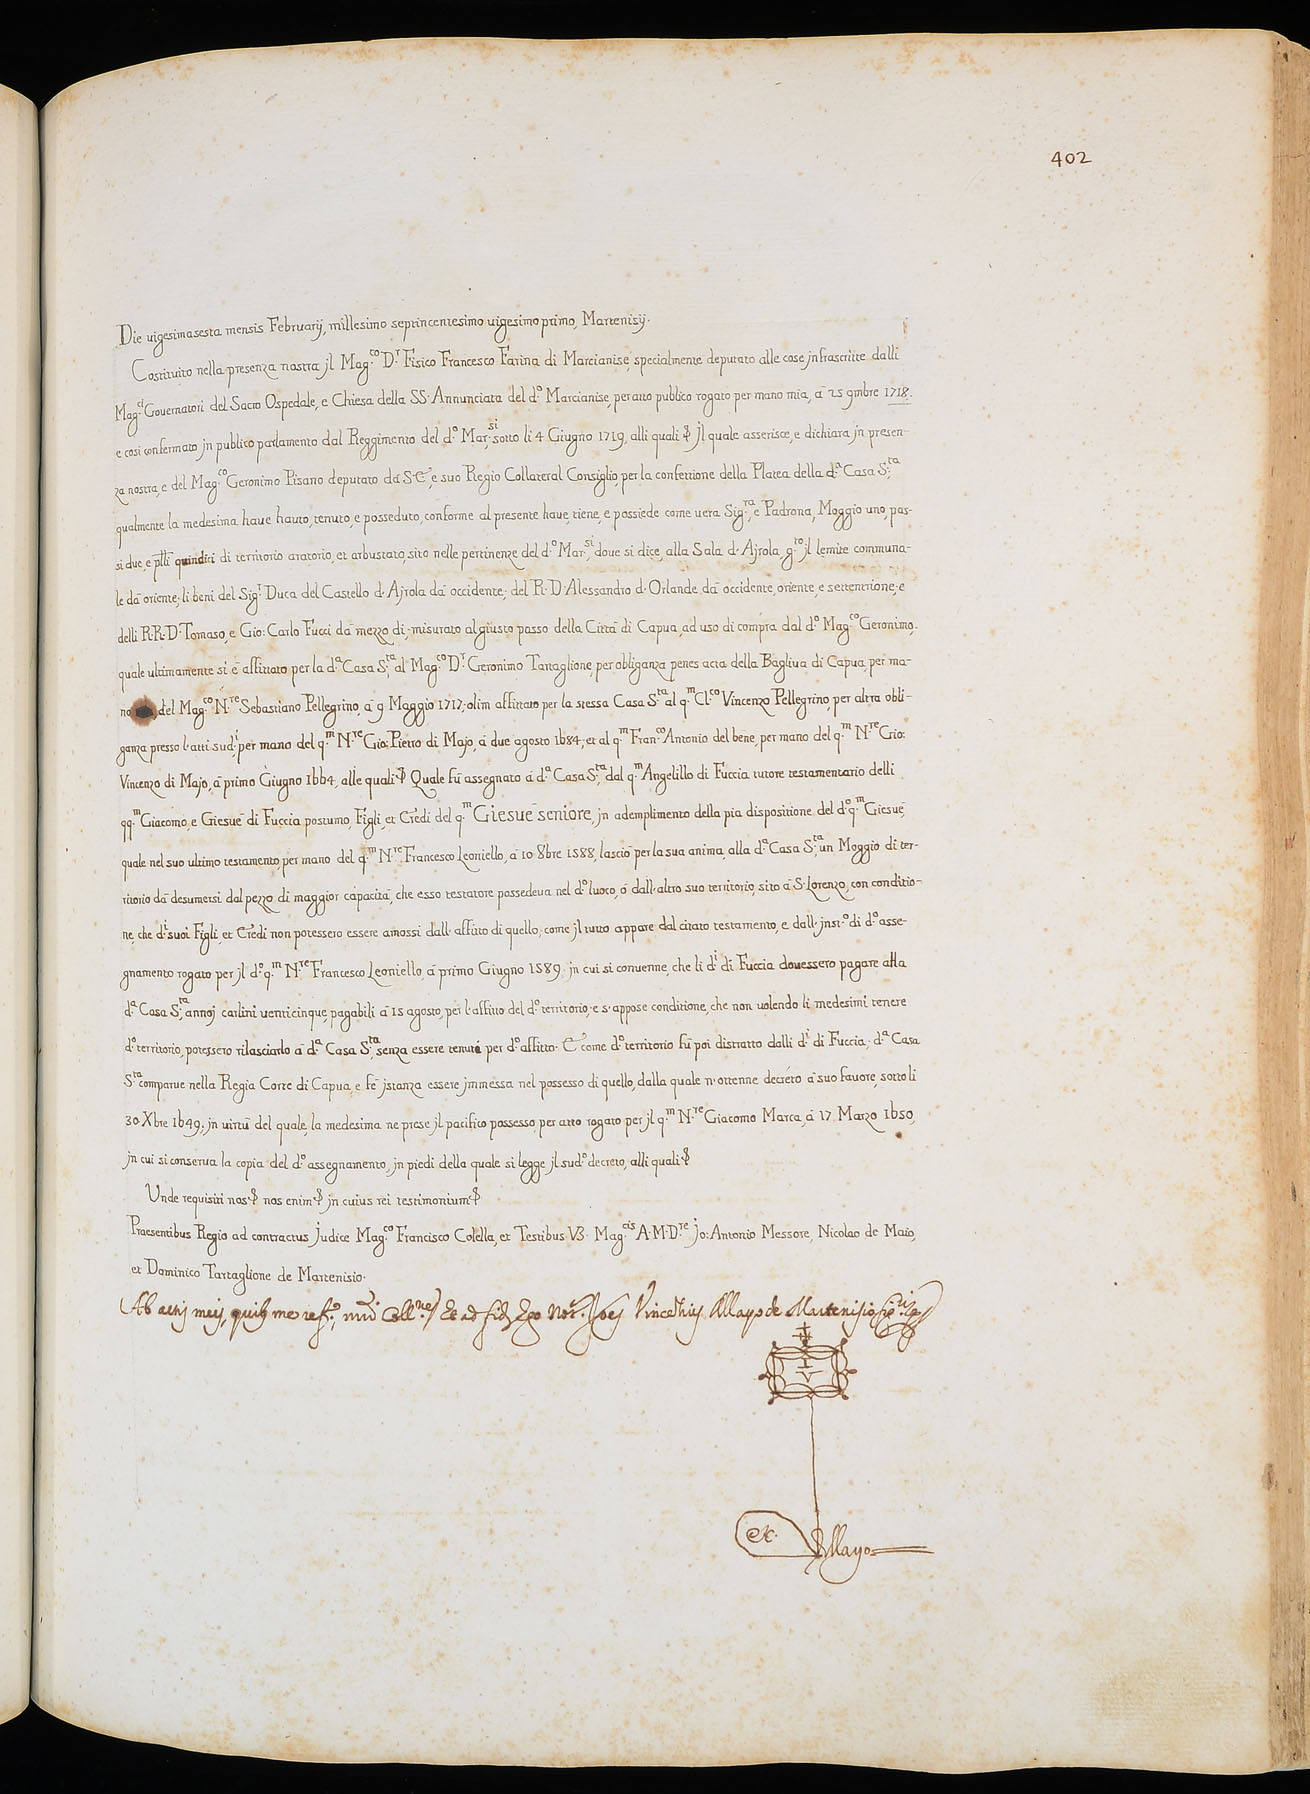 402
Die uigesimasesta mensis Februarij, millesimo septincentesimo uigesimo primo, Martenisij.
Costituito nella presenza nostra jl Mag.co D.r Fisico Francesco Farina di Marcianise, specialmente deputato alle cose jnfrascritte dalli
Mag.ci Gouernatori del Sacro Ospedale, e Chiesa della SS. Annunciata del d.o Marcianise, per atto publico rogato per mano mia, à 25 9mbre 1718.
e così confermato jn publico parlamento dal Reggimento del d.o Mar.si sotto li 4 Giugno 1719, alli quali jl quale asserisce, e dichiara jn presen-
za nostra, e del Mag.co Geronimo Pisano deputato da S. E., e suo Regio Collateral Consiglio, per la confettione della Platea della d.a Casa S.ta
qualmente la medesima haue hauto, tenuto, e posseduto, conforme al presente haue, tiene, e possiede come uera Sig.ra, e Padrona, Moggio uno, pas-
si due, e p̃lli quindici di territorio aratorio, et arbustato, sito nelle pertinenze del d.o Mar.si, doue si dice, alla Sala d'Ajrola, g.to jl lemite communa-
le dà oriente; li beni del Sig.r Duca del Castello d'Ajrola dà occidente; del R. D. Alessandro d'Orlande, dà occidente, oriente, e settentrione; e
delli R.R. D. Tomaso, e Gio: Carlo Fucci dà mezzo dì; misurato al giusto passo della Città di Capua, ad uso di compra dal d.o Mag.co Geronimo.
quale ultimamente si è affittato per la d.a Casa S.ta al Mag.co D.r Geronimo Tartaglione, per obliganza penes acta della Bagliua di Capua, per ma-
no del Mag.co N.re Sebastiano Pellegrino, à 9 Maggio 1717; olim affittato per la stessa Casa S.ta al q.m Cl.co Vincenzo Pellegrino, per altra obli-
ganza presso l'atti sud.i, per mano del q.m N.re Gio: Pietro di Majo, à due agosto 1684, et al q.m Fran.co Antonio del bene, per mano del q.m N.re Gio:
Vincenzo di Majo, à primo Giugno 1664, alle quali Quale fù assegnato à d.a Casa S.ta dal q.m Angelillo di Fuccia tutore testamentario delli
qq.m Giacomo, e Giesuè di Fuccia postumo, Figli, et Eredi del q.m Giesuè seniore, jn adempimento della pia dispositione del d.o q.m Giesuè
quale nel suo ultimo testamento, per mano del q.m N.re Francesco Leoniello, à 10 8bre 1588, lasciò per la sua anima, alla d.a Casa S.ta un Moggio di ter-
ritorio dà desumersi dal pezzo di maggior capacità, che esso testatore possedeua nel d.o luoco, ò dall'altro suo territorio, sito à S. Lorenzo, con conditio-
ne, che d.i suoi Figli, et Eredi non potessero essere amossi dall'affitto di quello; come jl tutto appare dal citato testamento, e dall'jnst.o di d.o asse-
gnamento rogato per jl d.o q.m N.re Francesco Leoniello, à primo Giugno 1589. jn cui si conuenne, che li d.i di Fuccia douessero pagare alla
d.a Casa S.ta, annoj carlini uenticinque, pagabili à 15 agosto, per l'affitto del d.o territorio; e s'appose conditione, che non uolendo li medesimi tenere
d.o territorio, potessero rilasciarlo à d.a Casa S.ta, senza essere tenuti per d.o affitto. E come d.o territorio fù poi distratto dalli d.i di Fuccia; d.a Casa
S.ta comparue nella Regia Corte di Capua, e fè jstanza essere jmmessa nel possesso di quello, dalla quale n'ottenne decreto à suo fauore, sotto li
30 Xbre 1649; jn uirtù del quale, la medesima ne prese jl pacifico possesso, per atto rogato per jl q.m N.re Giacomo Marca, à 17 Marzo 1650,
jn cui si conserua la copia del d.o assegnamento, jn piedi della quale si legge jl sud.o decreto, alli quali
Unde requisiti nos nos enim jn cuius rei testimonium
Praesentibus Regio ad contractus Judice Mag.co Francisco Colella, et Testibus V3. Mag.cis A.M.D.re Jo: Antonio Messore, Nicolao de Maio,
et Dominico Tartaglione de Martenisio.
Ab actis meis, quib me ref.o, Et ad fid. Ego Not.r Joes Vincentius de Mayo de Martenisio
I V
de Mayo